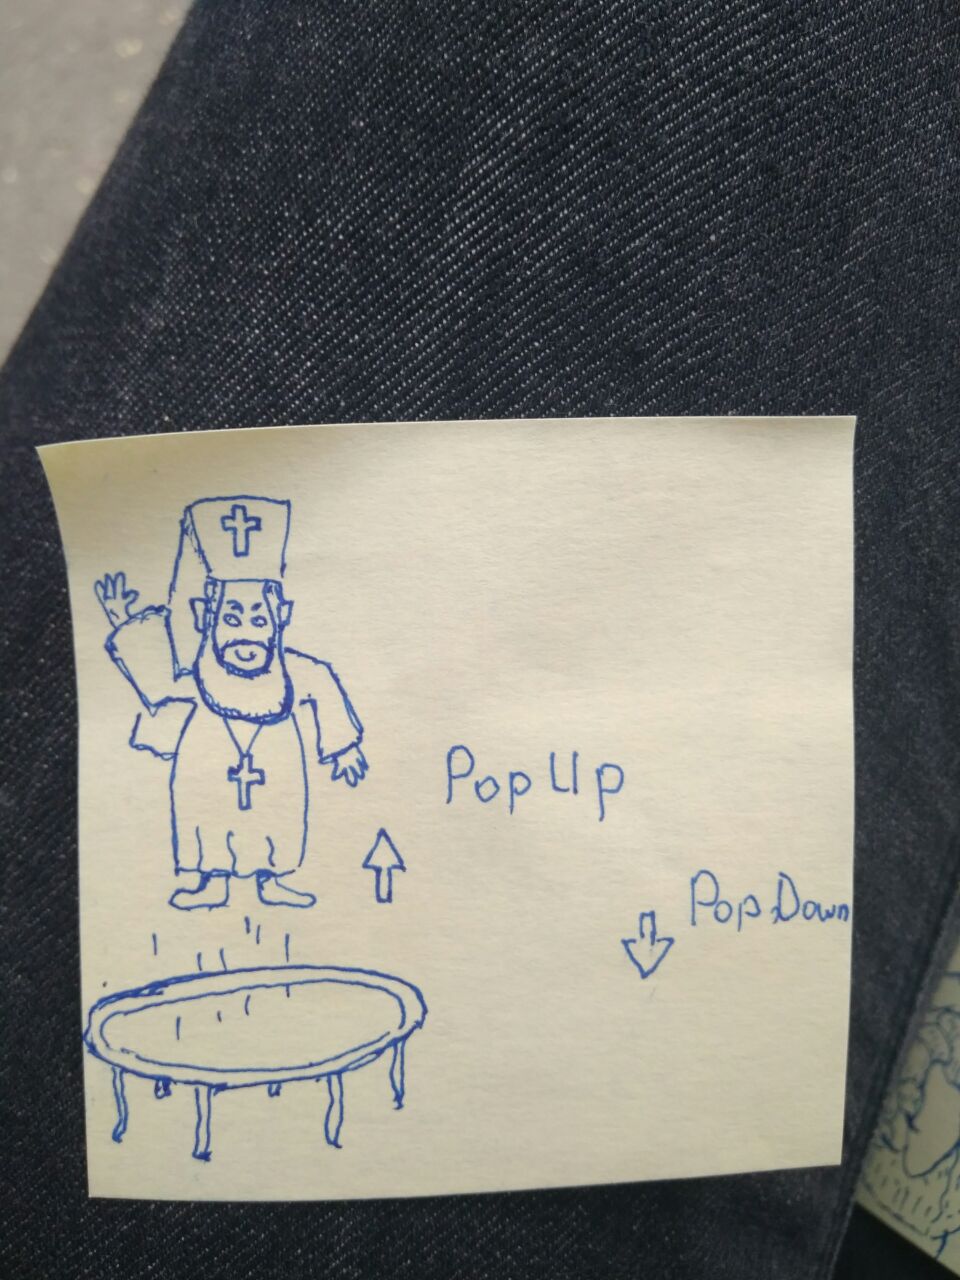 Pop Up
Pop Down